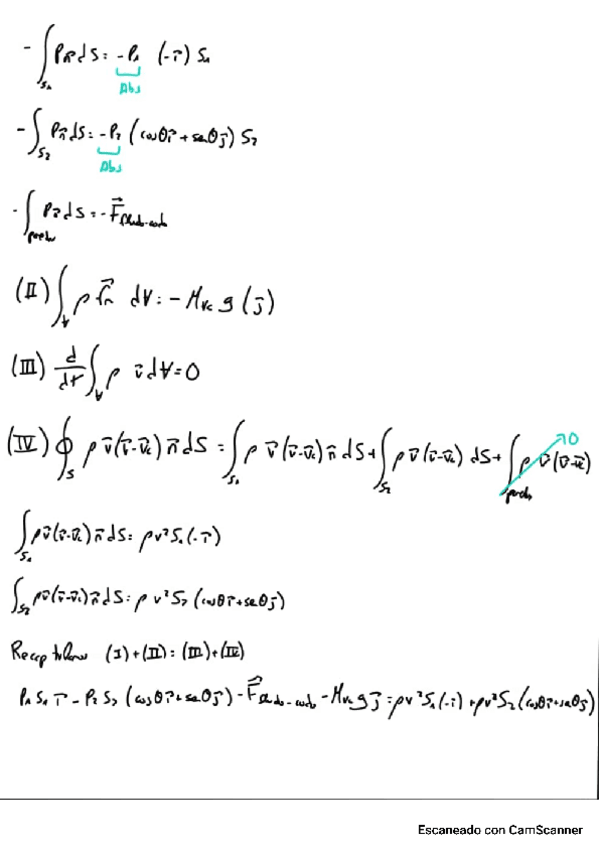 - ∫_{S₁} P n⃗ dS = -P₁ (-i⃗) S₁
Abs
- ∫_{S₂} P n⃗ dS = -P₂ (cosθ i⃗ + senθ j⃗) S₂
Abs
- ∫_{pared} P n⃗ dS = - F⃗_{fluido-codo}
(II) ∫_V ρ f⃗m dV = - Mvc g (j⃗)
(III) d/dt ∫_V ρ v⃗ dV = 0
(IV) ∮_S ρ v⃗ (v⃗-v⃗c) n⃗ dS = ∫_{S₁} ρ v⃗ (v⃗-v⃗c) n⃗ dS + ∫_{S₂} ρ v⃗ (v⃗-v⃗c) dS + ∫_{pared} ρ v⃗ (v⃗-v⃗c) 0
∫_{S₁} ρ v⃗ (v⃗-v⃗c) n⃗ dS = ρ v² S₁ (-i⃗)
∫_{S₂} ρ v⃗ (v⃗-v⃗c) n⃗ dS = ρ v² S₂ (cosθ i⃗ + senθ j⃗)
(I) + (II) = (III) + (IV)
P₁ S₁ i⃗ - P₂ S₂ (cosθ i⃗ + senθ j⃗) - F⃗_{fluido-codo} - Mvc g j⃗ = ρ v² S₁ (-i⃗) + ρ v² S₂ (cosθ i⃗ + senθ j⃗)
Escaneado con CamScanner